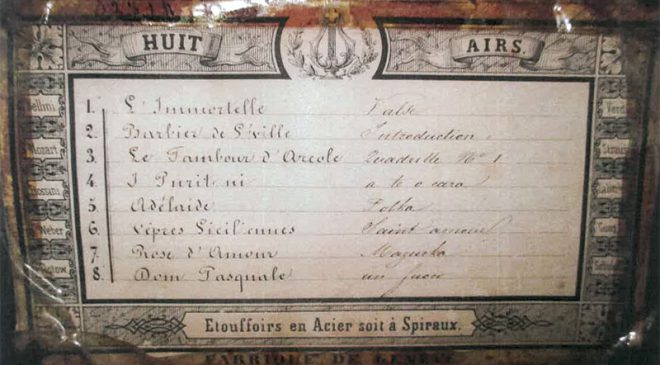 HUIT AIRS.
1. L'Immortelle Valse
2. Barbier de Séville Introduction.
3. Le Tambour d'Arcole Quadrille No 1
4. I Purit ni a te o cara
5. Adélaide Polka
6. Vêpres Sicil'ennes Saint amour
7. Rose d'Amour Mazurka
8. Dom Pasquale un
Bellini
Mozart
Rossini
Weber
Etouffoirs en Acier soit à Spiraux.
FABRIQUE DE GENÈVE